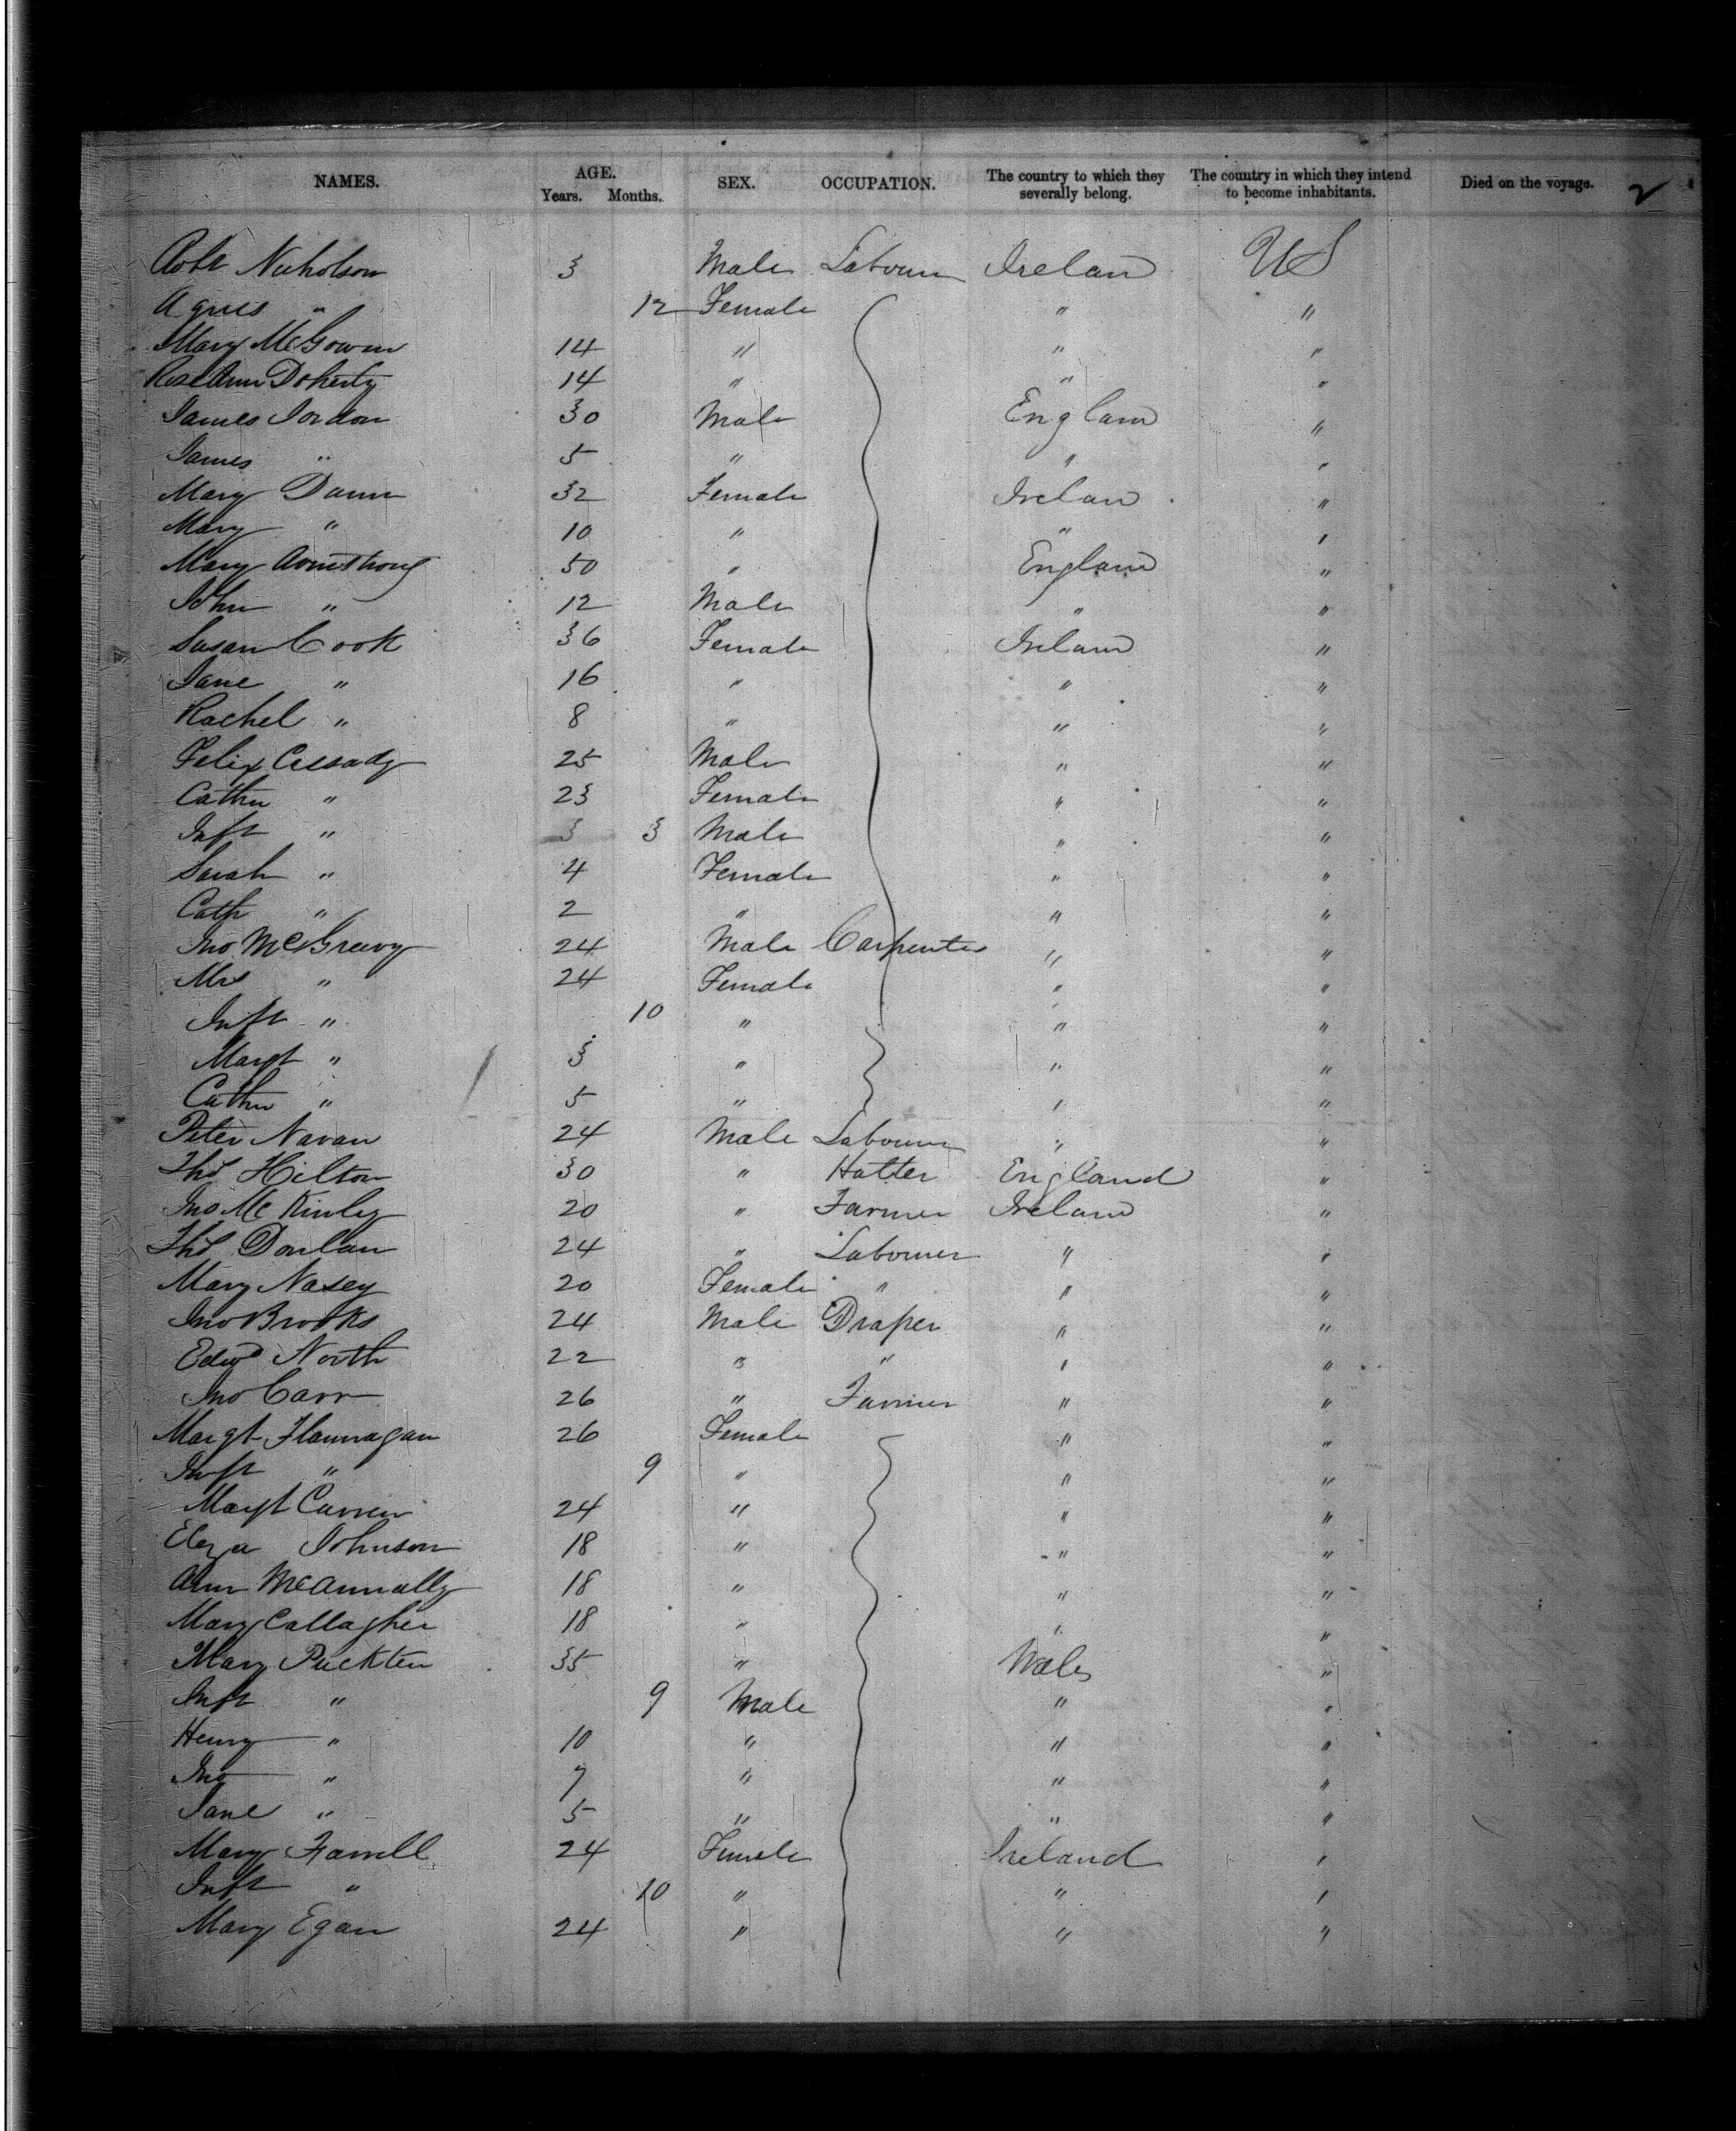 NAMES. AGE. Years. Months. SEX. OCCUPATION. The country to which they severally belong. The country in which they intend to become inhabitants. Died on the voyage. 2
Robt Nicholson 3 Male Labourer Ireland US
Agnes " 12 Female " "
Mary McGowan 14 " " "
RoseAnn Doherty 14 " " "
James Jordon 30 Male England "
James " 5 " " "
Mary Dunn 32 Female Ireland "
Mary " 10 " " "
Mary Armstrong 50 " England "
John " 12 Male " "
Susan Cook 36 Female Ireland "
Jane " 16 " " "
Rachel " 8 " " "
Felix Cassady 25 Male " "
Cathn " 23 Female " "
Inft " 3 3 Male " "
Sarah " 4 Female " "
Cath " 2 " " "
Jno McGreevy 24 Male Carpenter " "
Mrs " 24 Female " "
Inft " 10 " " "
Margt " 3 " " "
Cathn " 5 " " "
Peter Navan 24 Male Labourer " "
Ths Hilton 30 " Hatter England "
Jno McKinley 20 " Farmer Ireland "
Ths Donlan 24 " Labourer " "
Mary Nasey 20 Female " " "
Jno Brooks 24 Male Draper " "
Edwd North 22 " " " "
Jno Carr 26 " Farmer " "
Margt Flannagan 26 Female " "
Inft " 9 " " "
Margt Curren 24 " " "
Eliza Johnson 18 " " "
Ann McAnnally 18 " " "
Mary Callagher 18 " " "
Mary Puckten 35 " Wales "
Inft " 9 Male " "
Henry " 10 " " "
Jno " 7 " " "
Jane " 5 " " "
Mary Farrell 24 Female Ireland "
Inft " 10 " " "
Mary Egan 24 " " "